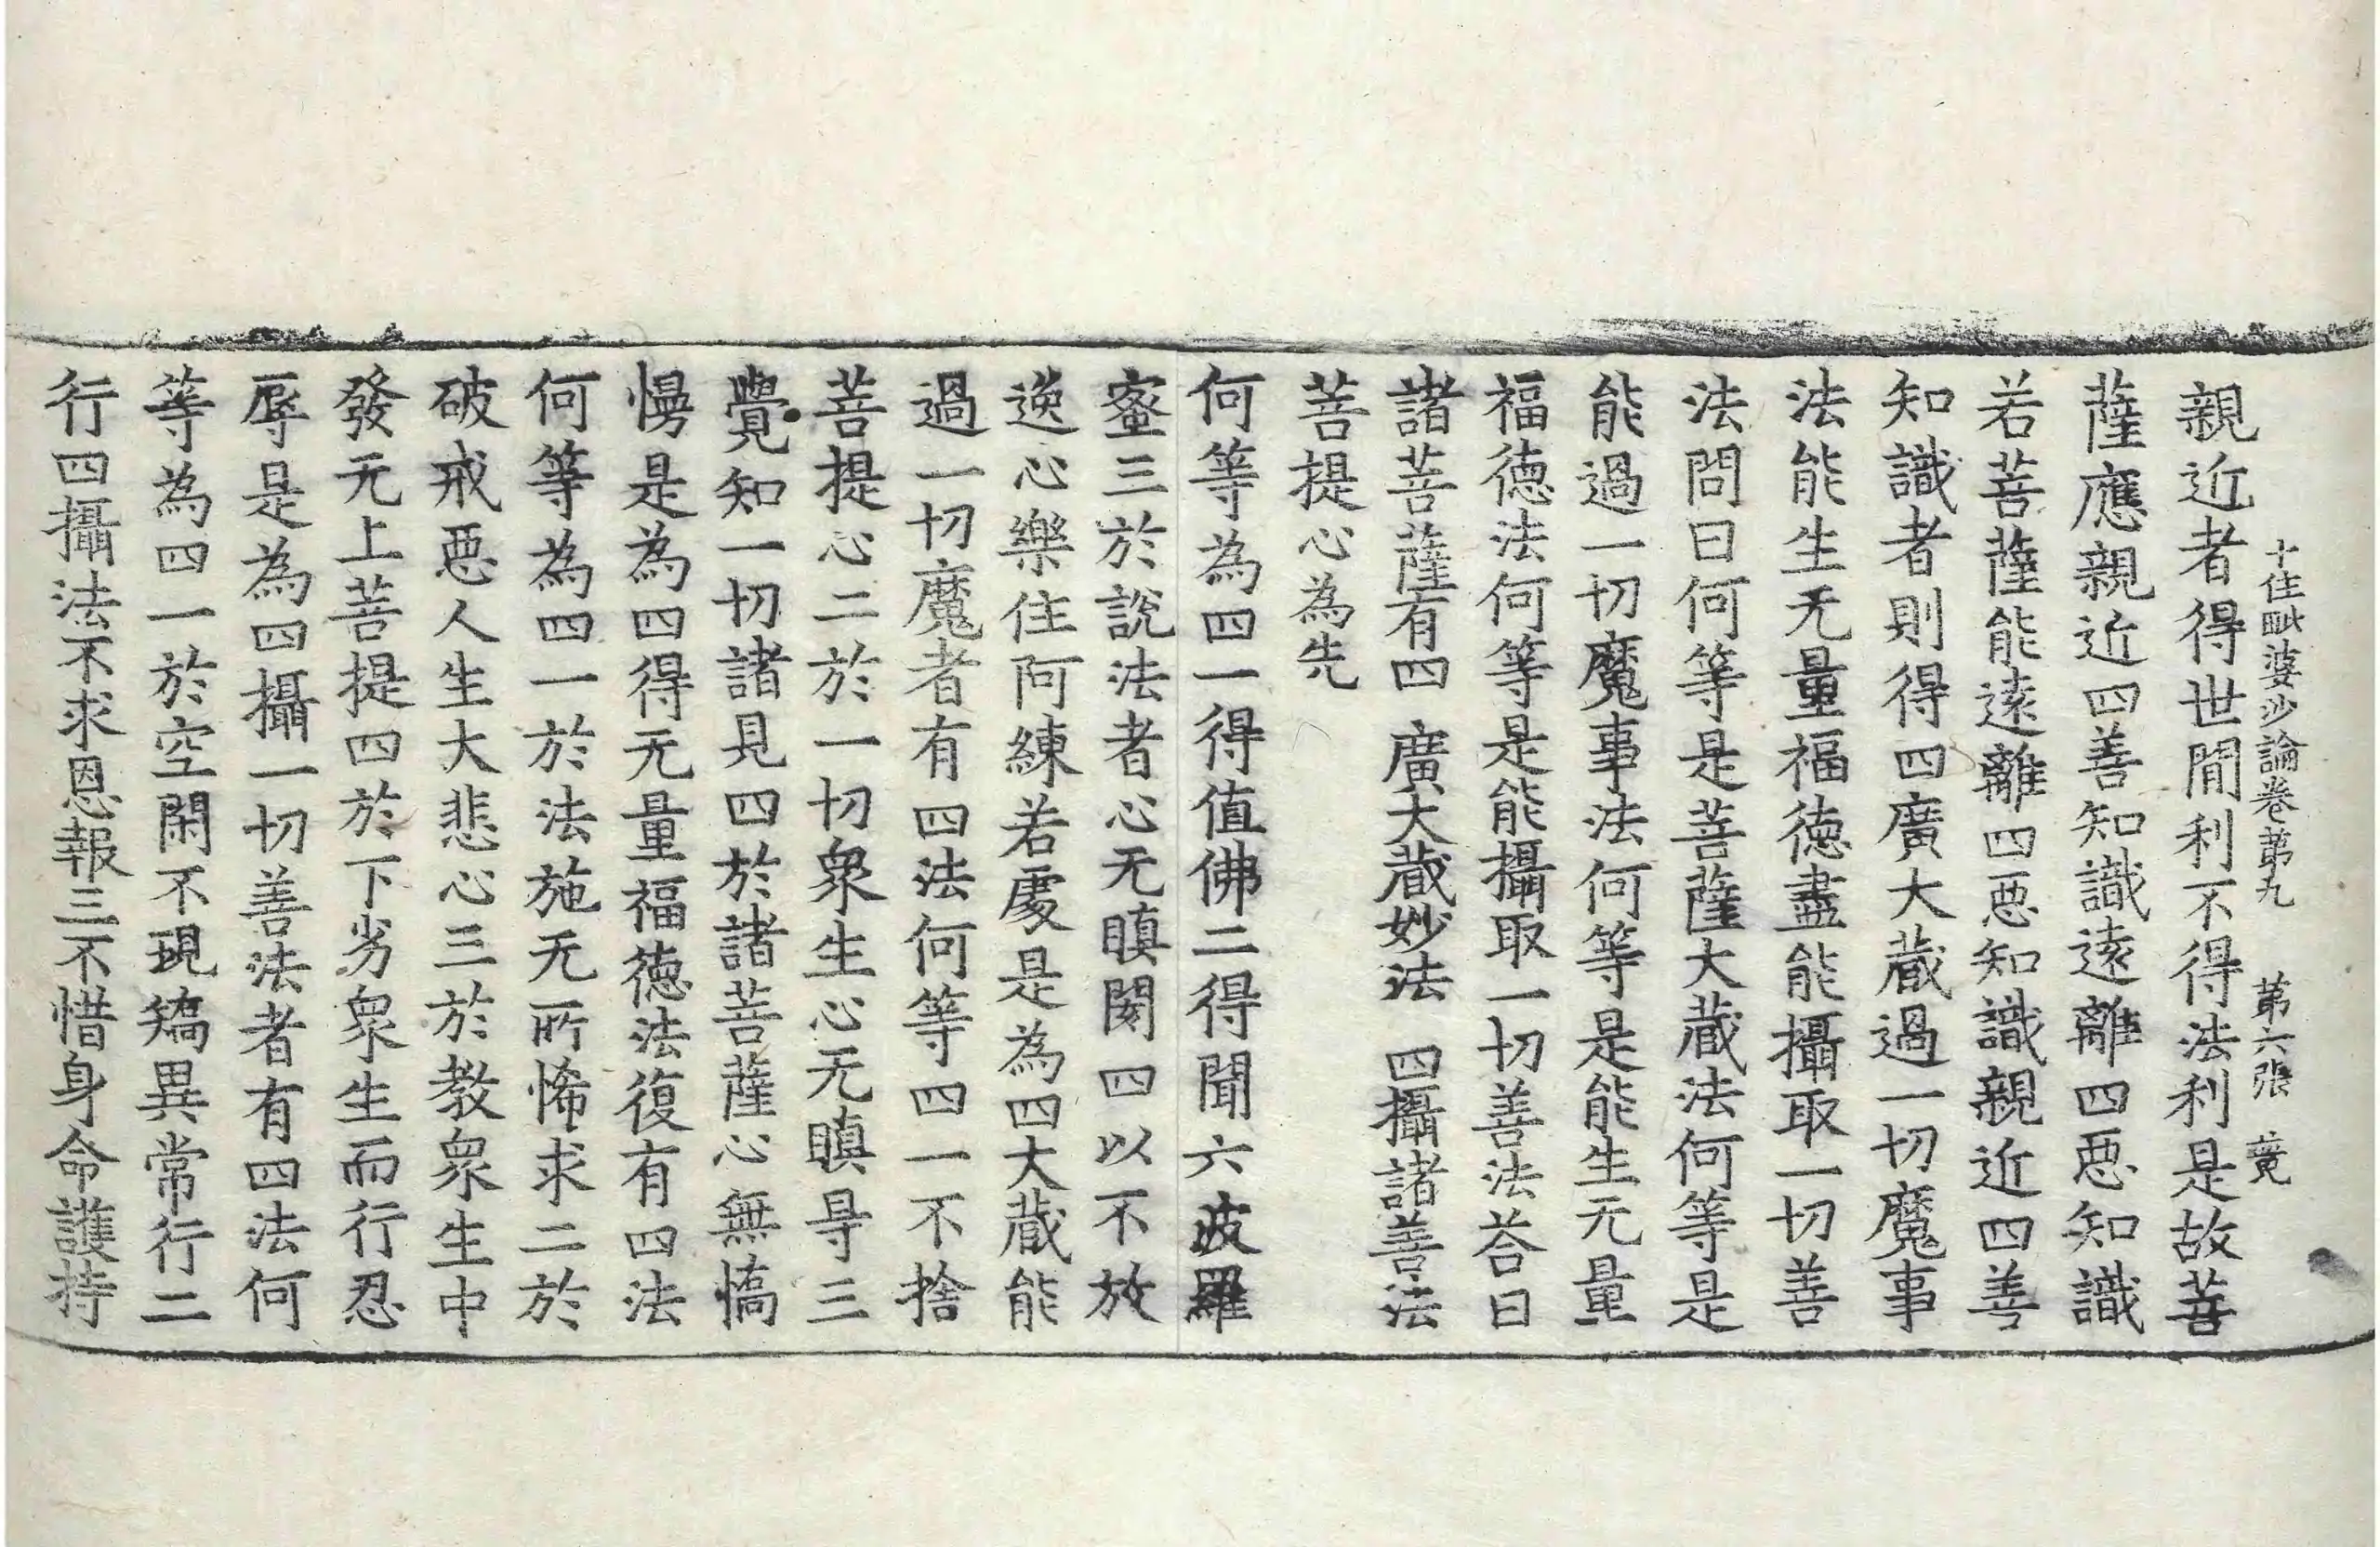 十住毗婆沙論卷第九　第六張　竟
親近者得世間利不得法利是故菩
薩應親近四善知識遠離四惡知識
若菩薩能遠離四惡知識親近四善
知識者則得四廣大藏過一切魔事
法能生无量福德盡能攝取一切善
法問曰何等是菩薩大藏法何等是
能過一切魔事法何等是能生无量
福德法何等是能攝取一切善法荅曰
諸菩薩有四　廣大藏妙法　四攝諸善法
菩提心為先
何等為四一得值佛二得聞六波羅
蜜三於說法者心无瞋閡四以不放
逸心樂住阿練若處是為四大藏能
過一切魔者有四法何等四一不捨
菩提心二於一切衆生心无瞋㝵三
覺知一切諸見四於諸菩薩心無憍
慢是為四得无量福德法復有四法
何等為四一於法施无所悕求二於
破戒惡人生大悲心三於教衆生中
發无上菩提四於下劣衆生而行忍
辱是為四攝一切善法者有四法何
等為四一於空閑不現矯異常行二
行四攝法不求恩報三不惜身命護持